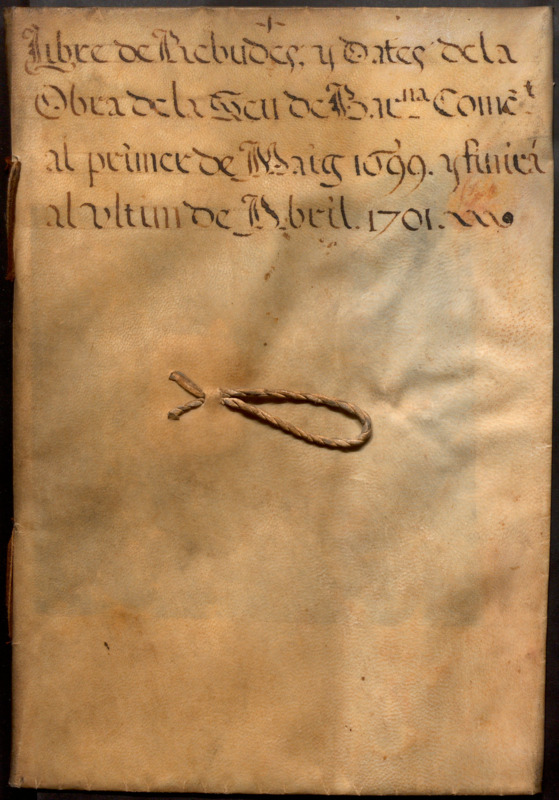 +
Libre de Rebudes, y Dates de la
Obra de la Seu de Barna Comēt
al primer de Maig 1699. y finirá
al vltim de Abril. 1701.